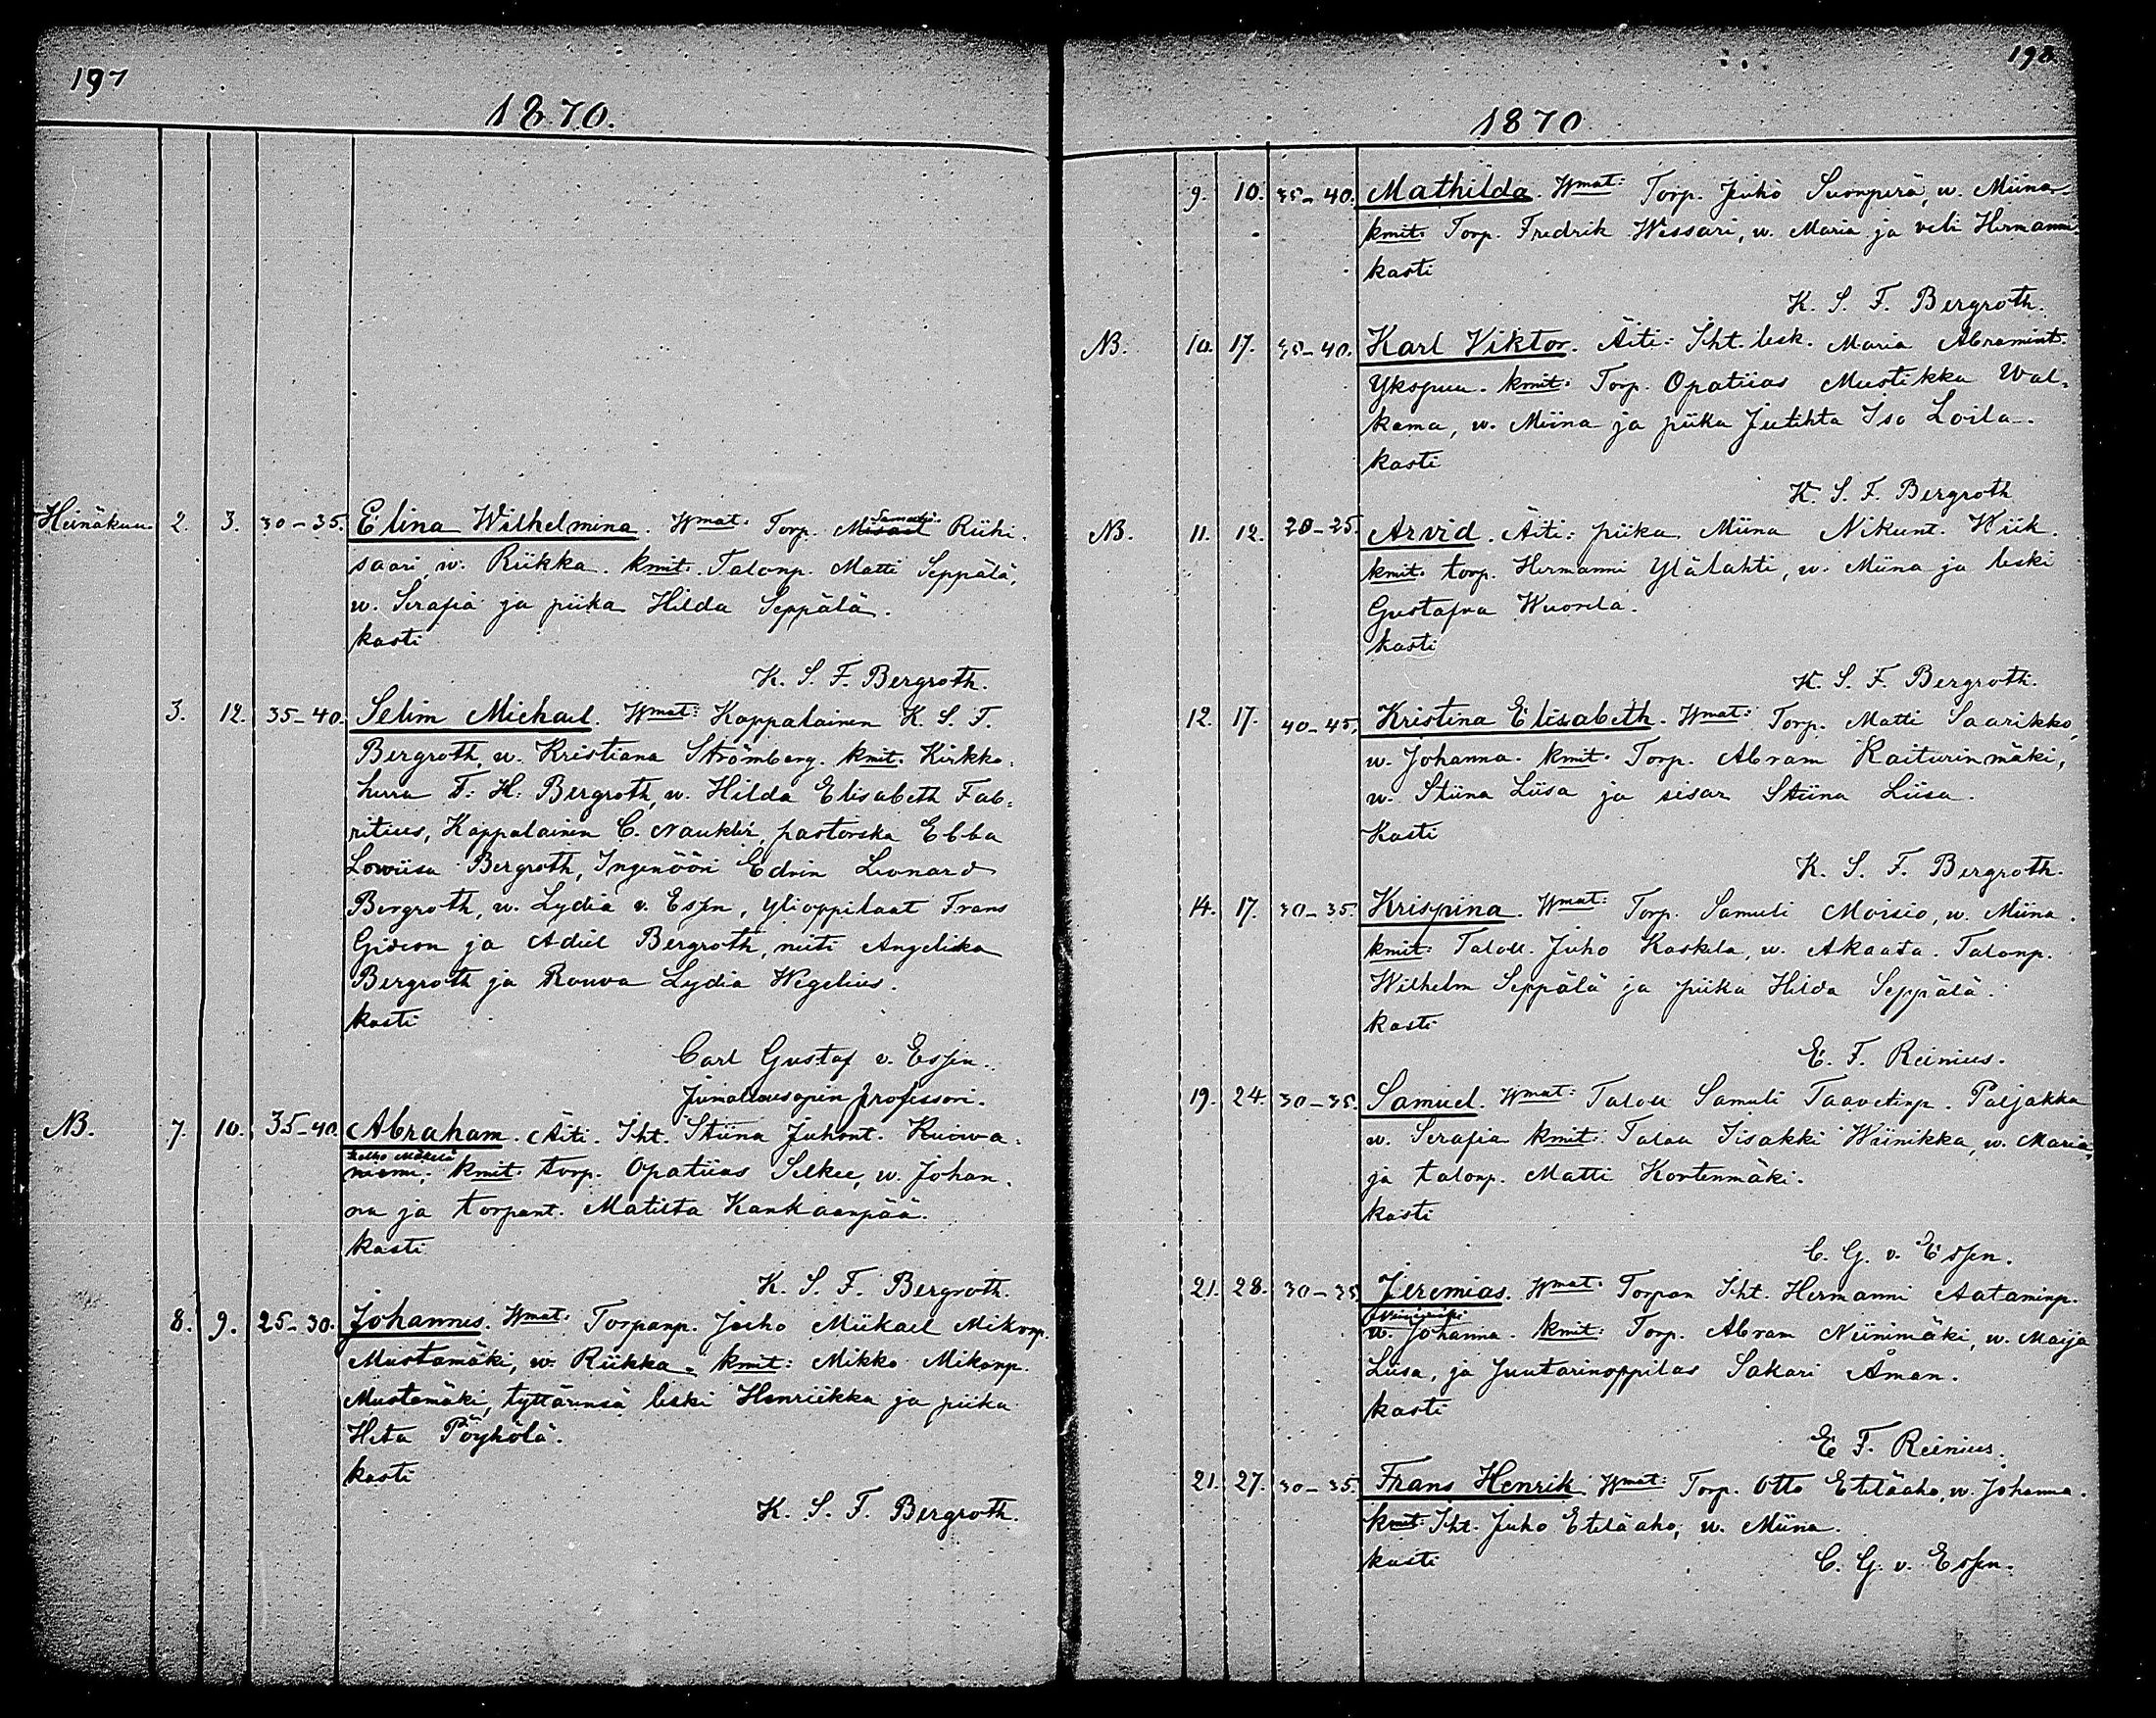 197
1870.
Heinäkuu. 2. 3. 30-35. Elina Wilhelmina. Wmat: Torp. Misael Riihi-
saari, w. Riikka. kmit: Talonp. Matti Seppälä,
w. Serafia ja piika Hilda Seppälä.
kasti
K. S. F. Bergroth.
3. 12. 35-40. Selim Michael. Wmat: Kappalainen K. S. F.
Bergroth, w. Kristiana Strömberg. kmit: Kirkko-
herra F. H. Bergroth, w. Hilda Elisabeth Fab-
ritius, Kappalainen C. Naukler, pastorska Ebba
Lowiisa Bergroth, Ingenööri Edvin Leonard
Bergroth, w. Lydia v. Essen, ylioppilaat Frans
Gideon ja Adiel Bergroth, neiti Angelika
Bergroth ja Rouva Lydia Wegelius.
kasti
Carl Gustaf v. Essen.
Jumaluusopin professori.
NB. 7. 10. 35-40. Abraham. Äiti: Iht. Stiina Juhont. Kuiwa-
Kelho Mäkelä
niemi. kmit: torp. Opatiias Selkee, w. Johan-
na ja torpant. Matilta Kankaanpää.
kasti
K. S. F. Bergroth.
8. 9. 25-30. Johannes. Wmat: Torpanp. Juho Miikael Mikonp.
Mustamäki, w. Riikka. kmit: Mikko Mikonp.
Mustamäki, tyttärensä leski Henriikka ja piika
Heta Pöyhölä.
kasti
K. S. F. Bergroth.
198
1870
9. 10. 35-40. Mathilda. Wmat: Torp. Juho Suonperä, w. Miina.
kmit: Torp. Fredrik Wessari, w. Maria ja veli Hermanni.
kasti
K. S. F. Bergroth.
NB. 10. 17. 35-40. Karl Viktor. Äiti: Iht. lesk. Maria Abramint.
Ykspuu. kmit: Torp. Opatiias Mustikka Wal-
kama, w. Miina ja piika Jutihta Iso Loila.
kasti
K. S. F. Bergroth
NB. 11. 12. 20-25. Arvid. Äiti: piika Miina Nikunt. Wiik.
kmit: torp. Hermanni Ylälahti, w. Miina ja leski
Gustafva Wuorela.
kasti
K. S. F. Bergroth.
12. 17. 40-45. Kristina Elisabeth. Wmat: Torp. Matti Saarikko,
w. Johanna. kmit: Torp. Abram Raiturinmäki,
w. Stiina Liisa ja sisar Stiina Liisa.
Kasti
K. S. F. Bergroth.
14. 17. 30-35. Krispina. Wmat: Torp. Samuli Moisio, w. Miina.
kmit: Taloll. Juho Koskela, w. Akaata. Talonp.
Wilhelm Seppälä ja piika Hilda Seppälä.
kasti
E. F. Reinius.
19. 24. 30-35. Samuel. Wmat: Taloll Samuli Taavetinp. Paljakka
w. Serafia kmit: Taloll Iisakki Wiinikka, w. Maria,
ja talonp. Matti Kortenmäki.
kasti
C. G. v. Essen.
21. 28. 30-35. Jeremias. Wmat: Torpan Iht. Hermanni Aataminp.
w. Johanna. kmit: Torp. Abram Niinimäki, w. Maija
Liisa, ja Juutarinoppilas Sakari Åman.
kasti
E. F. Reinius.
21. 27. 30-35. Frans Henrik. Wmat: Torp. Otto Eteläaho, w. Johanna.
kmit: Iht. Juho Eteläaho, w. Miina.
kasti C. G. v. Essen.